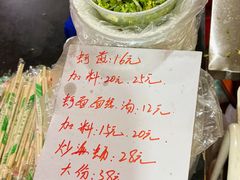 蚵煎:16元
加料:20元.25元
蚵面面线.汤:12元
加料:15元.20元
炒海蛎:28元
大份:38元